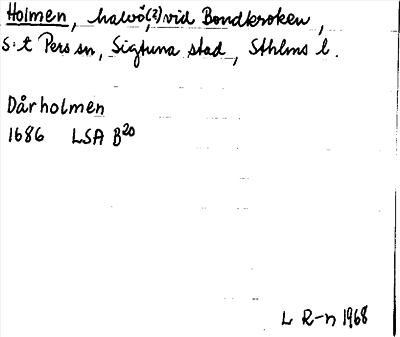 Holmen, halvö(?) vid Bondkroken,
S:t Pers sn, Sigtuna stad, Sthlms l.
Dårholmen
1686 LSA B20
L R-n 1968